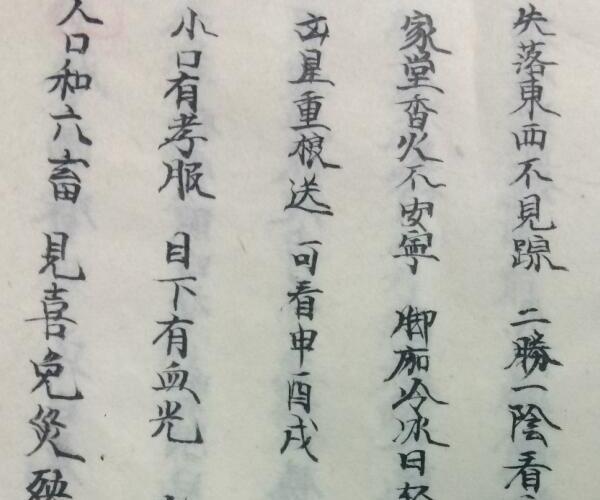 失落東西不見踪 二勝一陰看
家堂香火不安寧 脚冷冰日
五星重根送 可看申酉戌
小口有孝服 目下有血光
人口和六畜 見喜免災殃